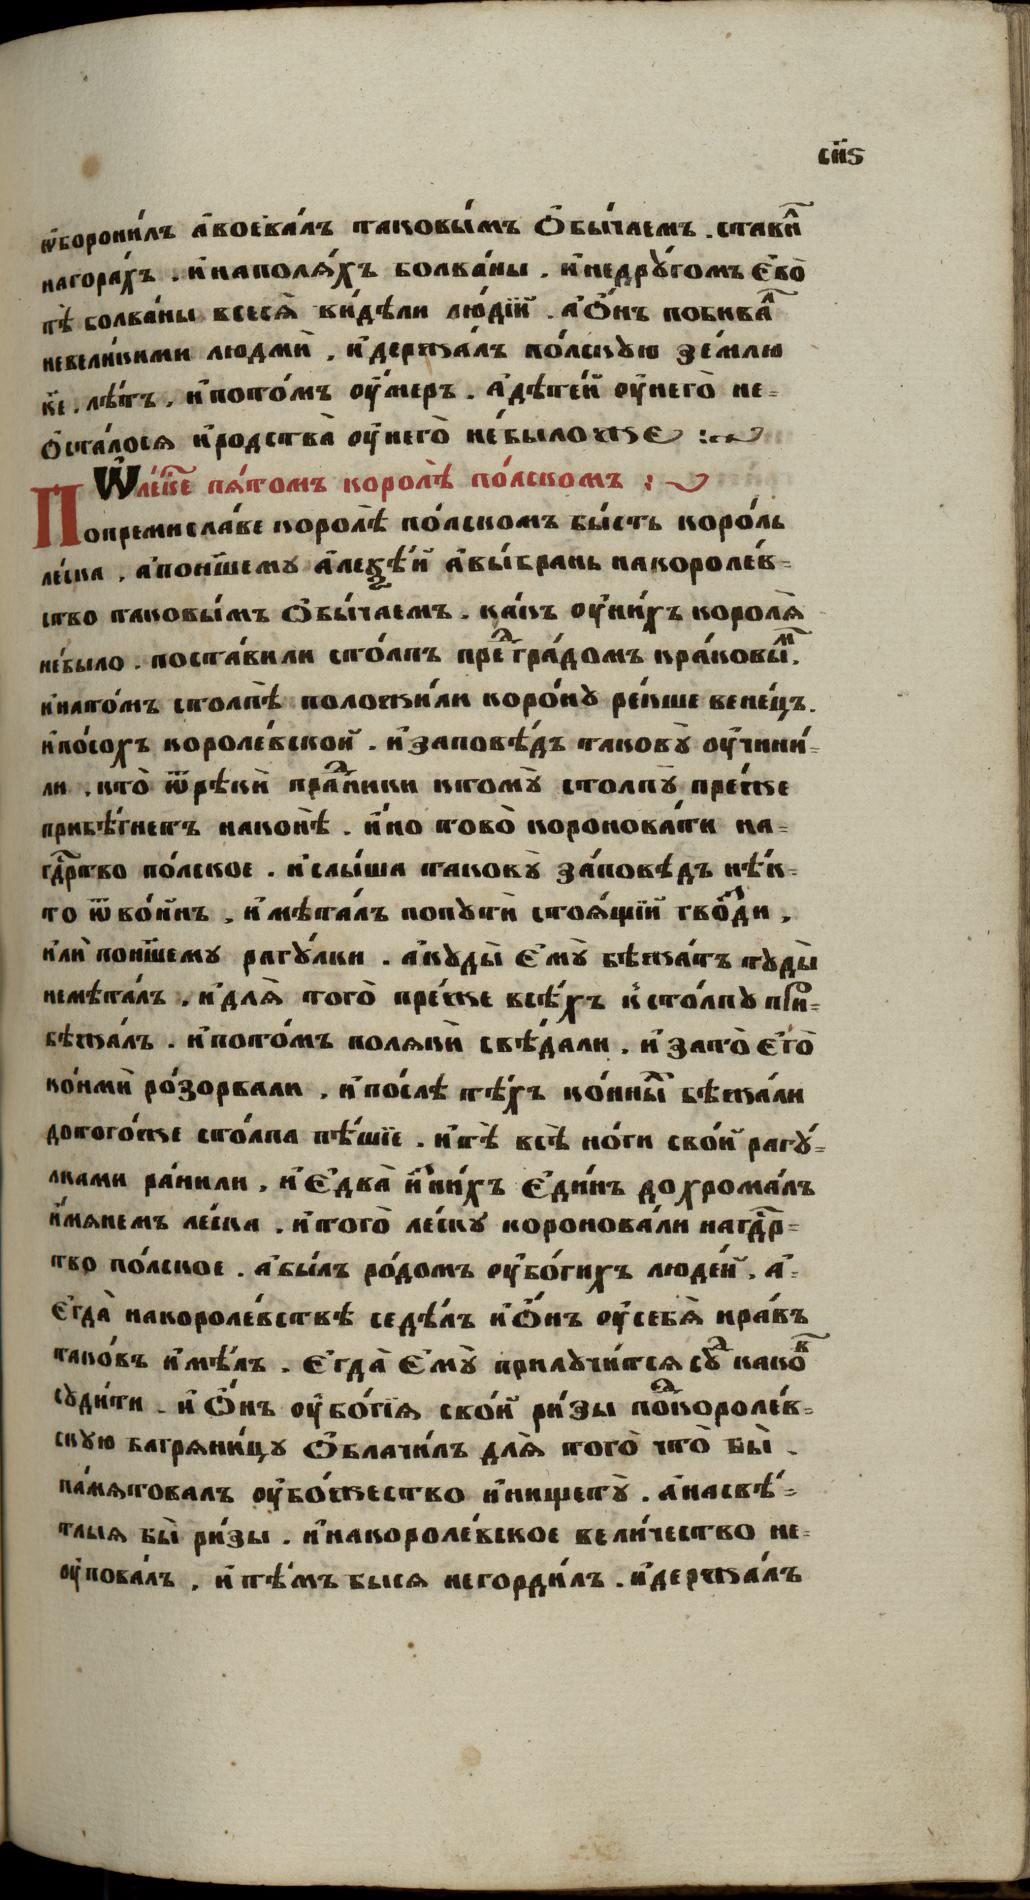 сн҃ѕ
ѡ҆борони́лъ а҆воева́лъ таковы́мъ ѻ҆бы́чаемъ . стави́л
нагора́хъ . и҆наполѧ́хъ болва́ны . и҆недрꙋ́гомъ є҆во̀
тѣ̀ болва́ны всесѧ̀ ви́дѣли лю́дїй . а҆ѻ҆́нъ побива́л
невели́кими людмѝ , и҆держа́лъ по́лскꙋю зе́млю
к҃е . лѣ́тъ , и҆пото́мъ оу҆́меръ . а҆дѣте́й оу҆негѡ̀ не=
ѻ҆ста́лосѧ и҆родства̀ оу҆него̀ не́быложе :~
Ѽ ле́ске пѧ́томъ королѣ̀ по́лскомъ :~
Попремисла́ве королѣ̀ по́лскомъ бы́сть коро́ль
ле́ска , а҆пона́шемꙋ а҆леѯѣ́й а҆вы́бранъ накороле́в=
ство таковы́мъ ѻ҆бы́чаемъ . ка́къ оу҆ни́хъ королѧ̀
не́было . поста́вили сто́лпъ пред гра́домъ кра́ковым .
и҆нато́мъ столпѣ̀ положи́ли коро́нꙋ ре́кше вене́цъ .
и҆по́сохъ короле́вской . и҆заповѣ́дь таковꙋ̀ оу҆чини́=
ли . кто̀ ѿ рѣкѝ пра́здники ктомꙋ̀ столпꙋ̀ пре́же
прибѣ́гнетъ наконѣ̀ . и҆но тово̀ коронова́ти на=
гдрство по́лское . и҆слы́ша таковꙋ̀ за́повѣдь нѣ́к=
то ѿ во́инъ , и҆мѣта́лъ попꙋтѝ стоѧ́щїй гво́зди ,
и҆лѝ пона́шемꙋ рагꙋ́лки . а҆кꙋды̀ є҆мꙋ̀ бѣжа́ть тꙋды̀
немѣта́лъ , и҆длѧ̀ того̀ пре́же всѣ́хъ к̾сто́лпꙋ при=
бѣжа́лъ . и҆пото́мъ полѧ́кѝ свѣ́дали . и҆зато̀ є҆го̀
ко́нмѝ ро́зорвали , и҆по́слѣ тѣ́хъ ко́нных бѣжа́ли
дотого́же сто́лпа пѣ́шїе . и҆тѣ̀ всѣ̀ но́ги свои́ рагꙋ́=
лками ра́нили , и҆є҆два̀ и҆з ни́хъ є҆ди́нъ дохрома́лъ
и҆́мѧнемъ ле́ска . и҆того̀ ле́скꙋ коронова́ли нагдр=
тво по́лское . а҆бы́лъ ро́домъ оу҆бо́гихъ люде́й . а҆=
є҆гда̀ накороле́вствѣ седѣ́лъ и҆ѻ҆́нъ оу҆себѧ̀ нра́въ
тако́въ и҆мѣ́лъ . є҆гда̀ є҆мꙋ̀ прилꙋчи́тсѧ сꙋд како́в
сꙋди́ти . и҆ ѻ҆́нъ оу҆бо́гїѧ свои́ ри́зы подкороле́в=
скꙋю багрѧни́цꙋ ѻ҆блачи́лъ длѧ̀ того̀ что̀ бы̀ .
па́мѧтовалъ оу҆бо́жество и҆нищетꙋ̀ . а҆насвѣ́=
тлыѧ бы̀ ри́зы . и҆накороле́вское вели́чество не=
оу҆пова́лъ , и҆тѣ́мъ бысѧ негорди́лъ . и҆держа́лъ